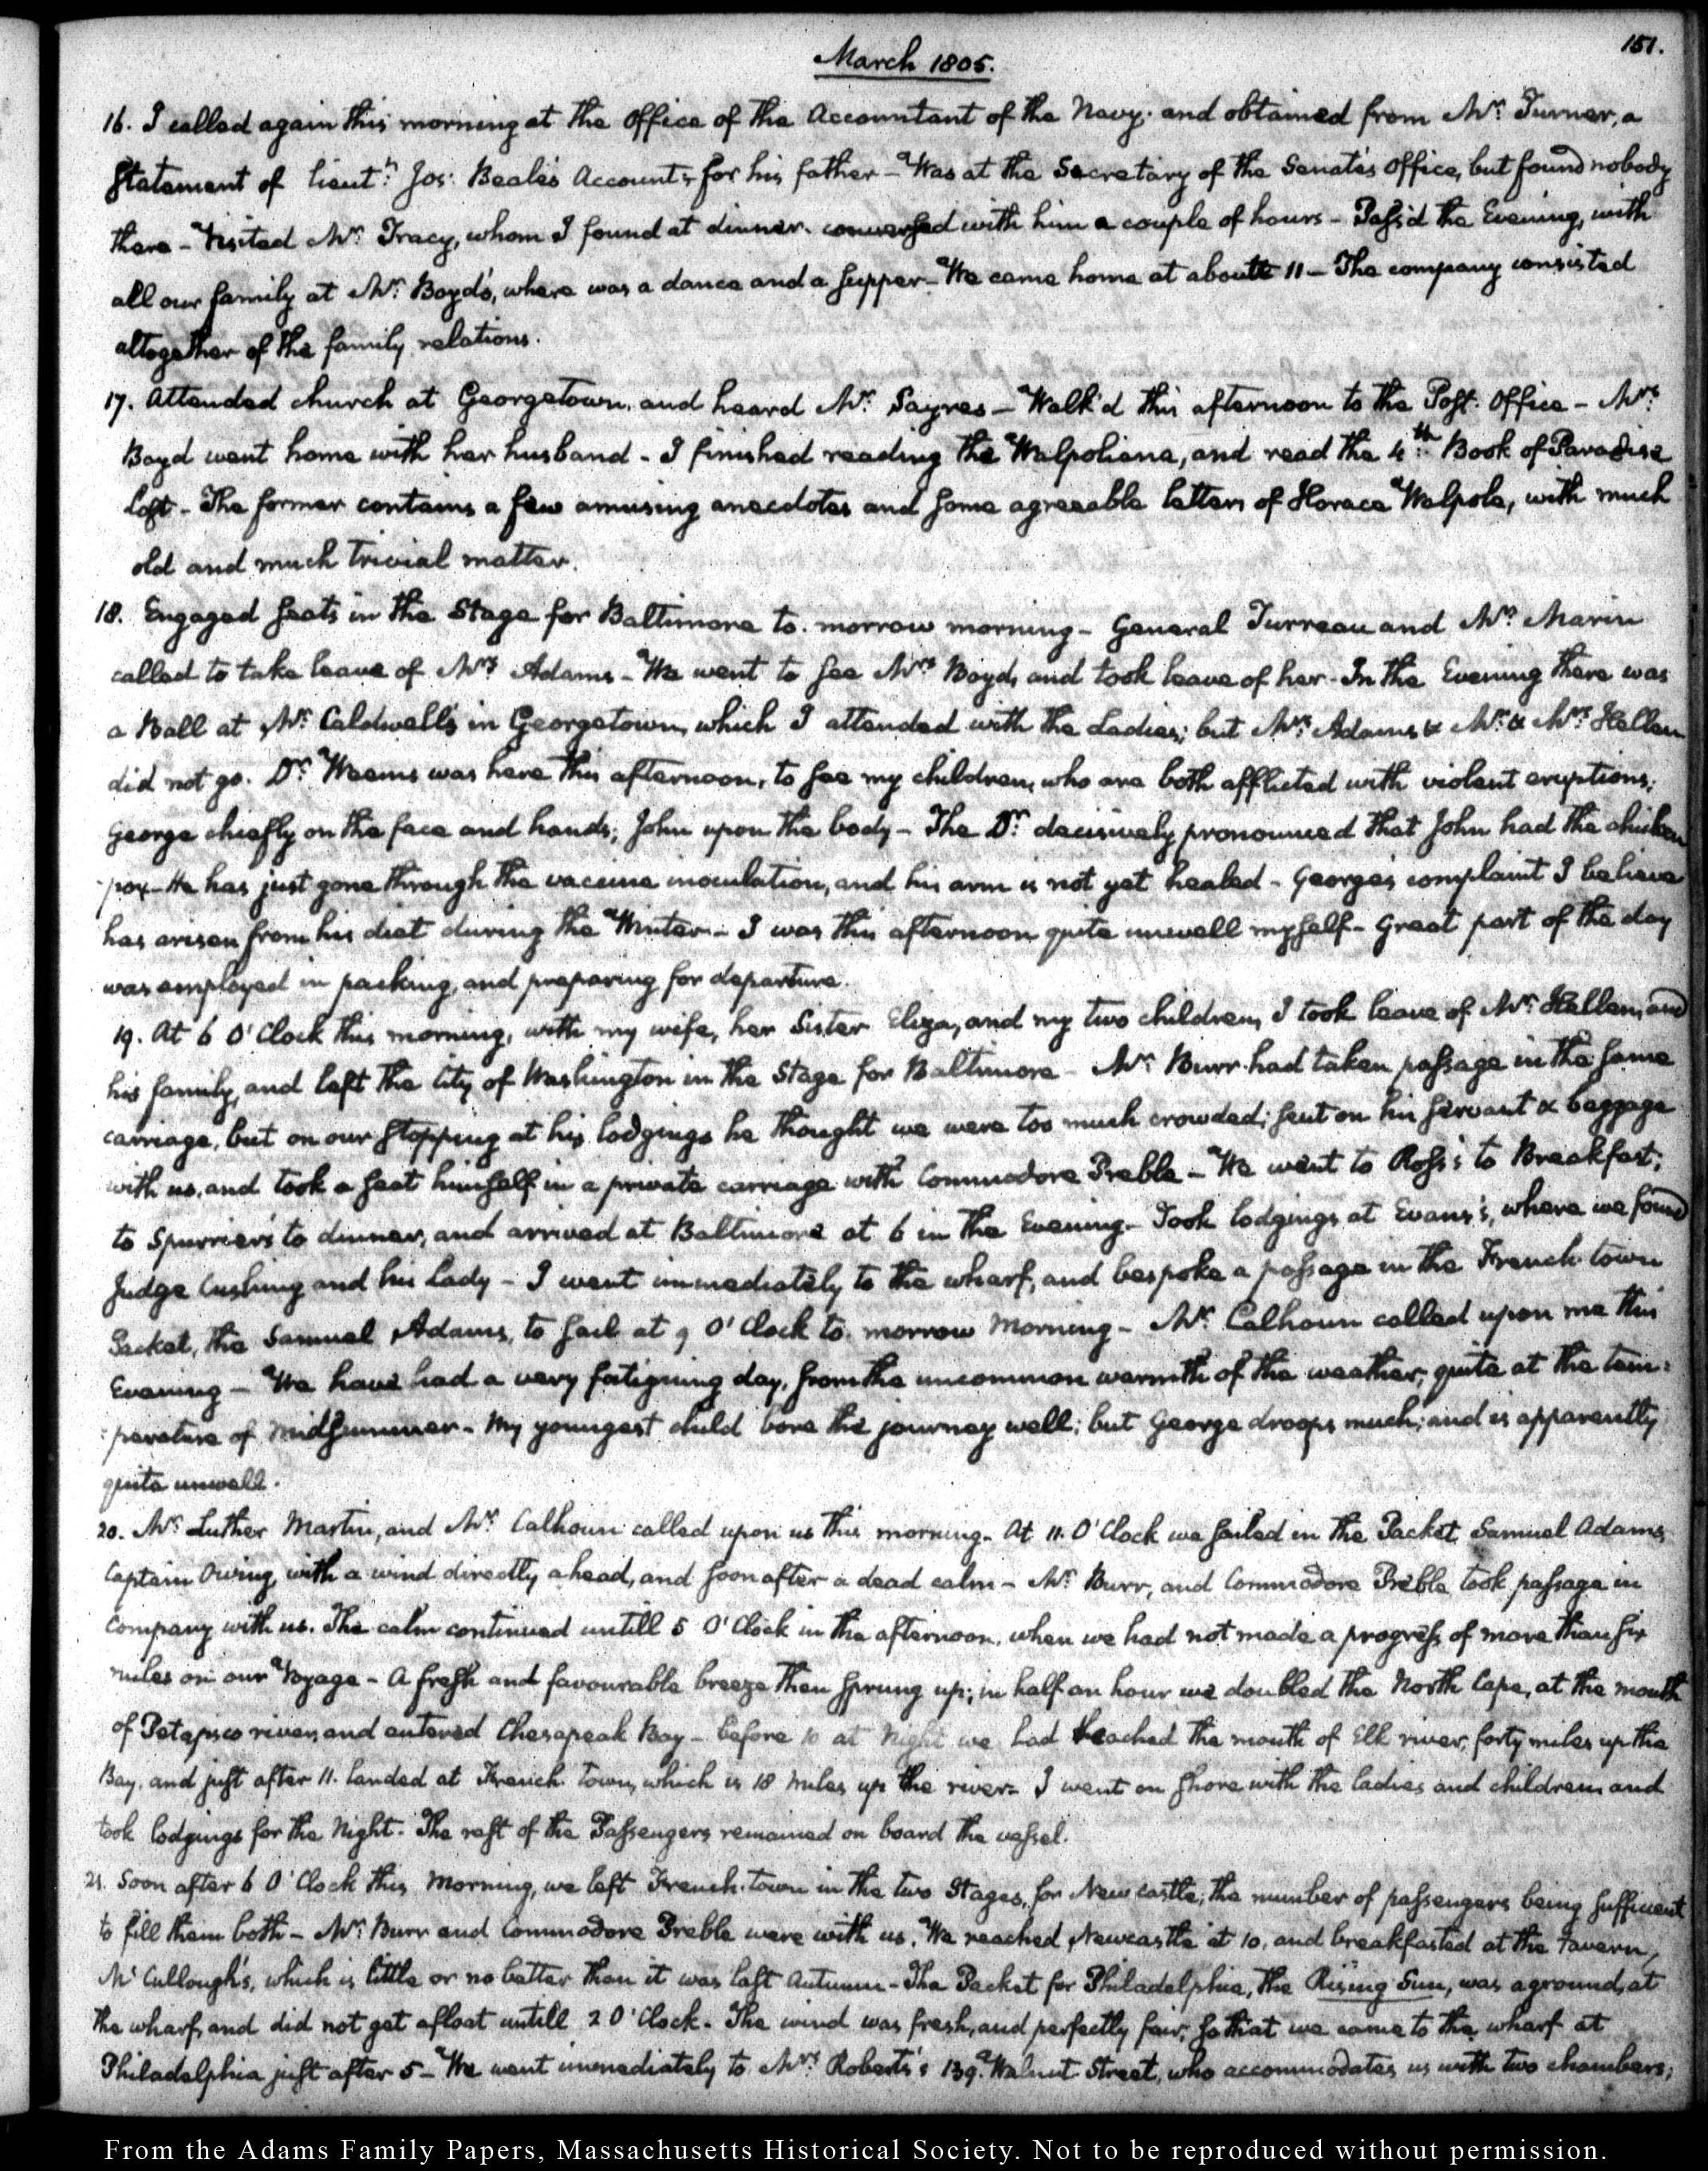 151.
March 1805.
16. I called again this morning at the Office of the Accountant of the Navy; and obtained from Mr. Turner, a
Statement of Lieutt. Jos: Beale's Accounts for his father — Was at the Secretary of the Senate's Office, but found nobody
there — Visited Mr. Tracy, whom I found at dinner. conversed with him a couple of hours — Pass'd the Evening, with
all our family at Mr. Boyd's, where was a dance and a supper — We came home at about 11 — The company consisted
altogether of the family relations.
17. Attended church at Georgetown, and heard Mr. Sayres — Walk'd this afternoon to the Post-Office — Mrs.
Boyd went home with her husband — I finished reading the Walpoliana, and read the 4th. Book of Paradise
Lost — The former contains a few amusing anecdotes and some agreeable letters of Horace Walpole, with much
old and much trivial matter.
18. Engaged seats in the Stage for Baltimore to-morrow morning — General Turreau and Mr. Marin
called to take leave of Mrs. Adams — We went to see Mrs. Boyd, and took leave of her — In the Evening there was
a Ball at Mr. Caldwell's in Georgetown, which I attended with the Ladies; but Mrs. Adams & Mr. & Mrs. Hellen
did not go. Dr. Weems was here this afternoon, to see my children, who are both afflicted with violent eruptions;
George chiefly on the face and hands; John upon the body — The Dr. decisively pronounced that John had the chicken
-pox — He has just gone through the vaccine inoculation, and his arm is not yet healed — George's complaint I believe
has arisen from his diet during the Winter — I was this afternoon quite unwell myself — Great part of the day
was employed in packing, and preparing for departure.
19. At 6 O'Clock this morning, with my wife, her Sister Eliza, and my two children, I took leave of Mr. Hellen, and
his family, and left the City of Washington in the Stage for Baltimore — Mr. Burr had taken passage in the same
carriage, but on our stopping at his lodgings he thought we were too much crowded; sent on his servant & baggage
with us, and took a seat himself in a private carriage with Commodore Preble — We went to Ross's to Breakfast;
to Spurrier's to dinner, and arrived at Baltimore at 6 in the Evening — Took lodgings at Evans's, where we found
Judge Cushing and his Lady — I went immediately to the wharf, and bespoke a passage in the French-town
Packet, the Samuel Adams, to sail at 9 O'Clock to-morrow Morning — Mr. Calhoun called upon me this
Evening — We have had a very fatiguing day, from the uncommon warmth of the weather, quite at the tem:
:perature of midsummer — My youngest child bore the journey well; but George droops much; and is apparently
quite unwell.
20. Mr. Luther Martin, and Mr. Calhoun called upon us this morning — At 11. O'Clock we sailed in the Packet Samuel Adams,
Captain Owing, with a wind directly ahead, and soon after a dead calm — Mr. Burr, and Commodore Preble took passage in
Company with us. The calm continued untill 5 O'Clock in the afternoon, when we had not made a progress of more than six
miles on our Voyage — A fresh and favourable breeze then sprung up; in half an hour we doubled the North Cape, at the mouth
of Patapsco river, and entered Chesapeak Bay — before 10 at Night we had reached the mouth of Elk river, forty miles up the
Bay, and just after 11. landed at French-town, which is 18 miles up the river — I went on shore with the ladies and children and
took lodgings for the Night — The rest of the Passengers remained on board the vessel.
21. Soon after 6 O'Clock this Morning, we left French-town in the two Stages, for New castle; the number of passengers being sufficient
to fill them both — Mr. Burr and Commodore Preble were with us. We reached Newcastle at 10, and breakfasted at the tavern,
McCullough's, which is little or no better than it was last Autumn — The Packet for Philadelphia, the Rising Sun, was aground, at
the wharf, and did not get afloat untill 2 O'Clock — The wind was fresh, and perfectly fair; so that we came to the wharf at
Philadelphia just after 5 — We went immediately to Mrs. Roberts's 139. Walnut-Street, who accommodates us with two chambers;
From the Adams Family Papers, Massachusetts Historical Society. Not to be reproduced without permission.